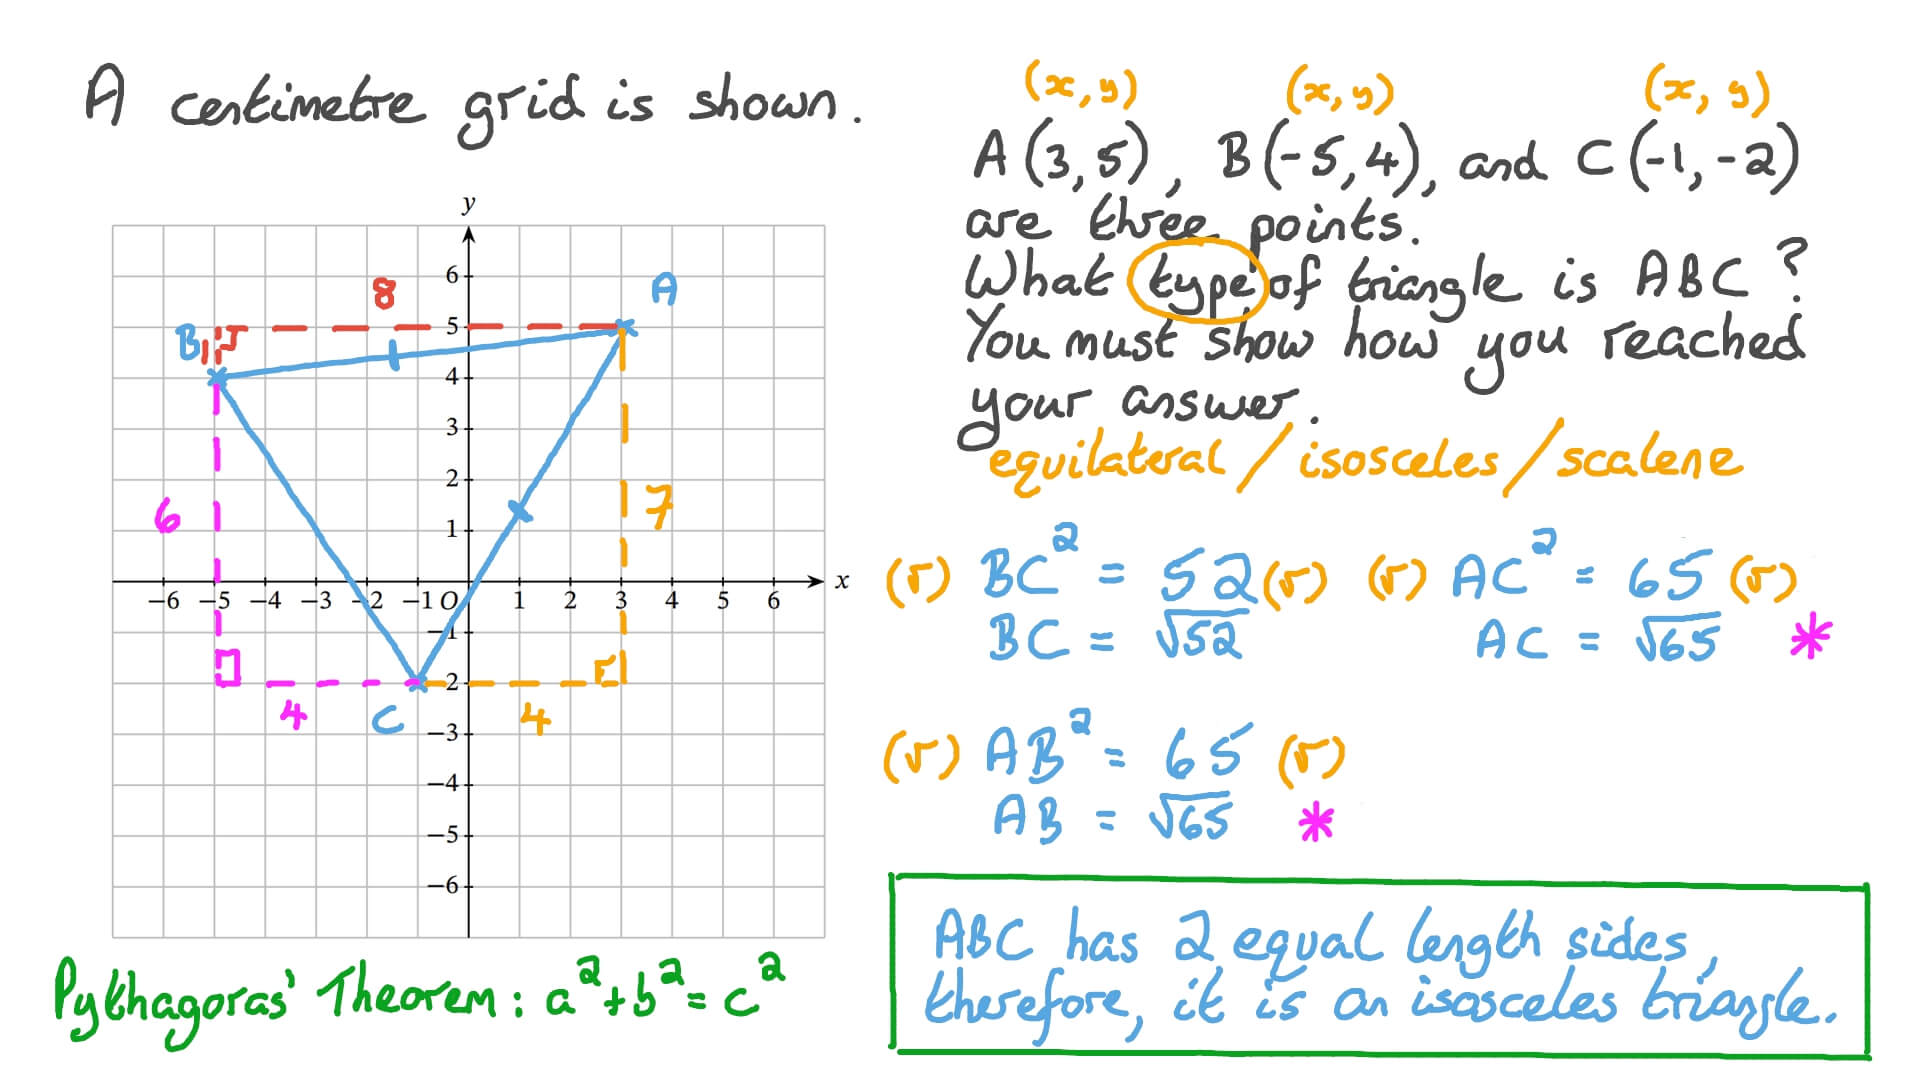 A centimetre grid is shown.
(x, y) (x, y) (x, y)
A(3,5), B(-5,4), and C(-1,-2)
are three points.
What type of triangle is ABC?
You must show how you reached
your answer.
equilateral / isosceles / scalene
y
6
5
4
3
2
1
−6 −5 −4 −3 −2 −1 O 1 2 3 4 5 6 x
−1
−2
−3
−4
−5
−6
8
A
B
1
6
7
4
C
4
(√) BC² = 52 (√) (√) AC² = 65 (√)
BC = √52 AC = √65 *
(√) AB² = 65 (√)
AB = √65 *
Pythagoras' Theorem: a² + b² = c²
ABC has 2 equal length sides,
therefore, it is an isosceles triangle.